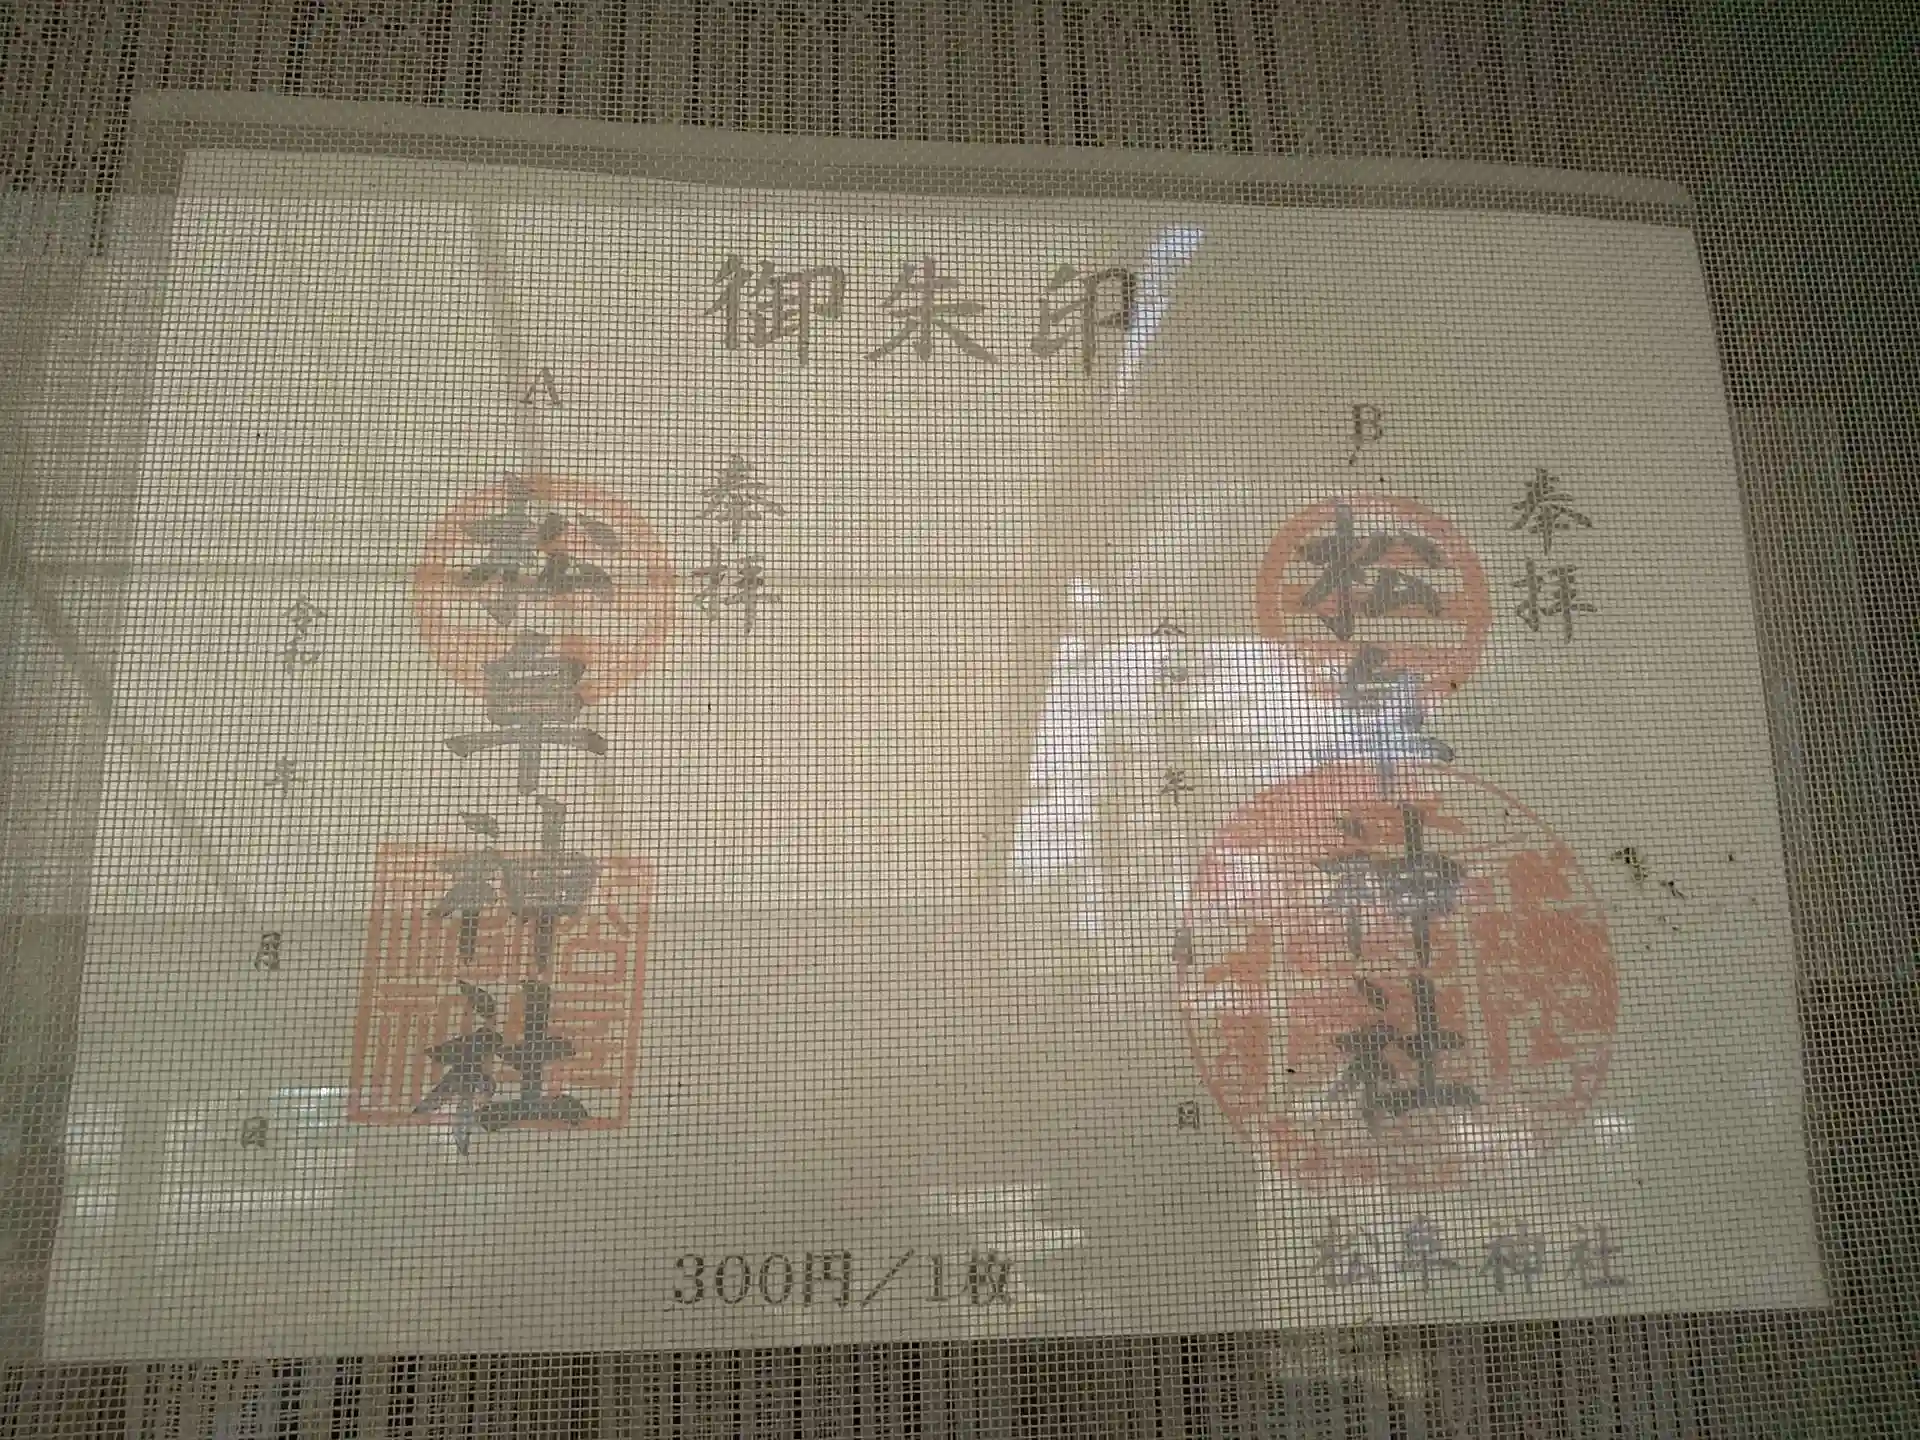 御朱印
A
奉拝
松阜神社
令和 年 月 日
B
奉拝
松阜神社
令和 年 月 日
300円/1枚
松阜神社